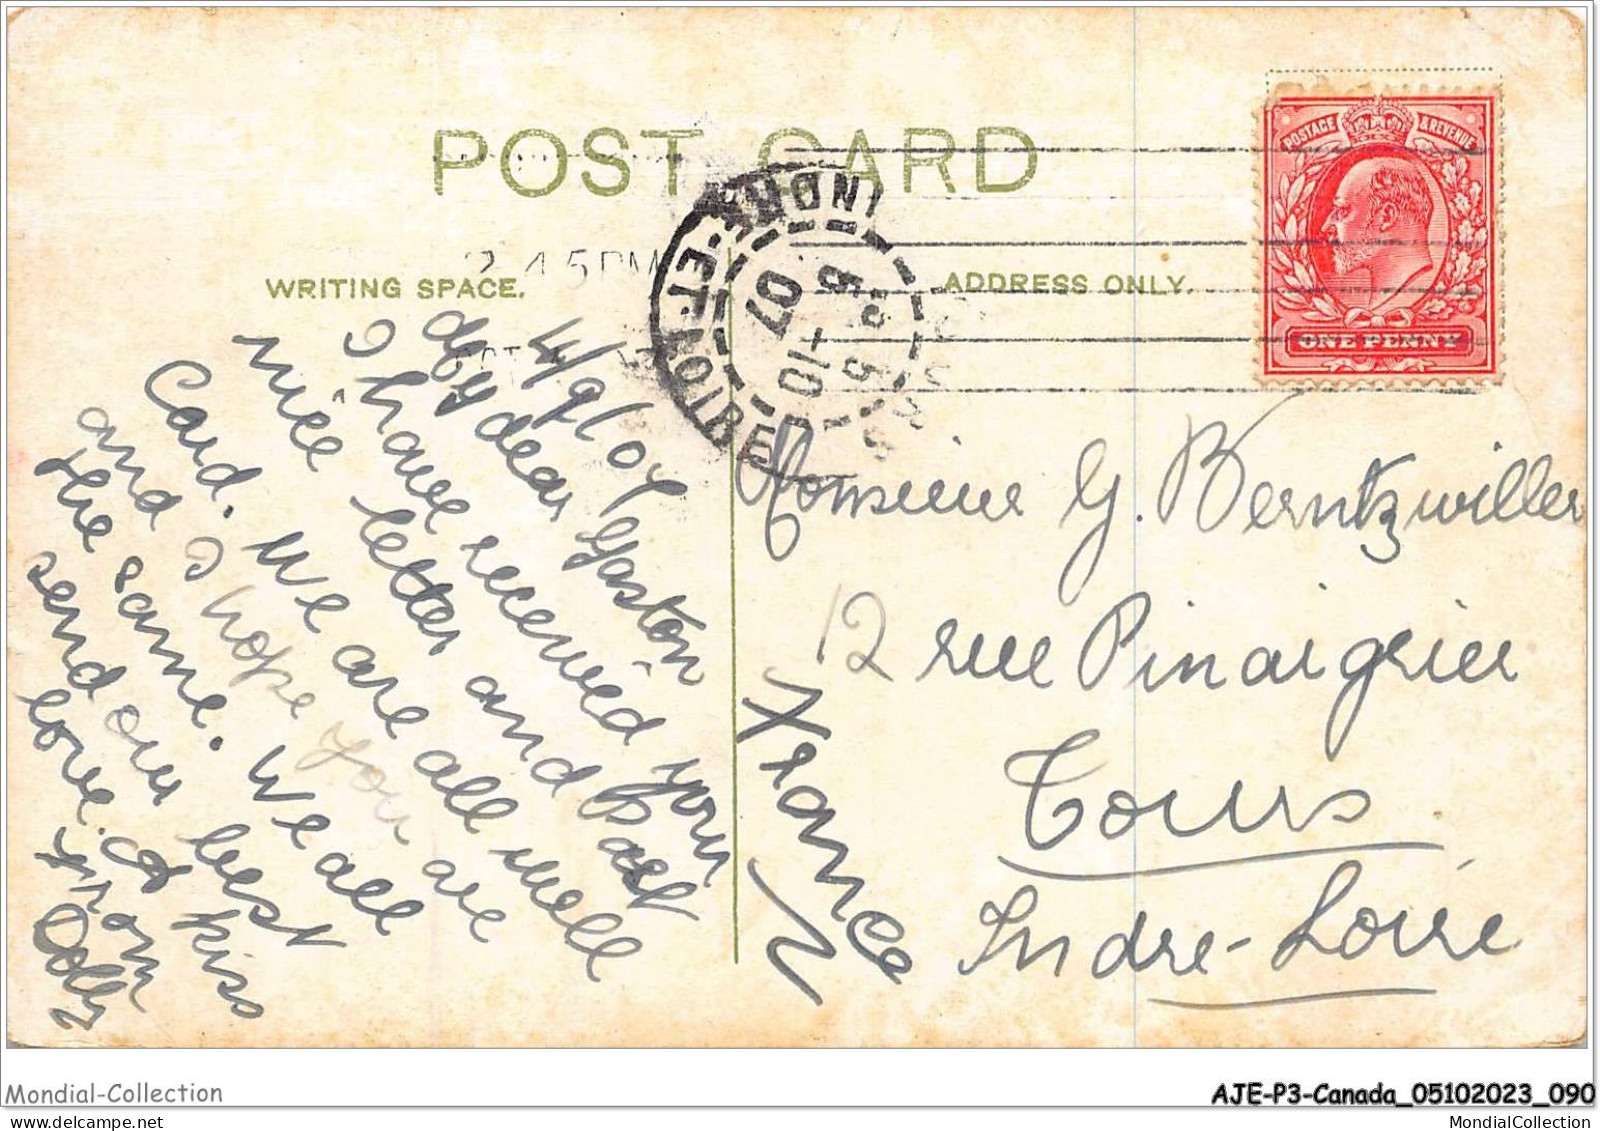 POST CARD
WRITING SPACE.
ADDRESS ONLY.
POSTAGE & REVENUE
ONE PENNY
2.45PM
INDRE-ET-LOIRE
5-10
07
4/9/07
My dear Gaston
I have received your
nice letter and Post
Card. We are all well
and I hope you are
the same. We all
send our best
love & kiss
from
Dolly
Monsieur G. Berntzwiller
12 rue Pinaigrier
Tours
Indre-Loire
France
Mondial-Collection
AJE-P3-Canada_05102023_090
MondialCollection